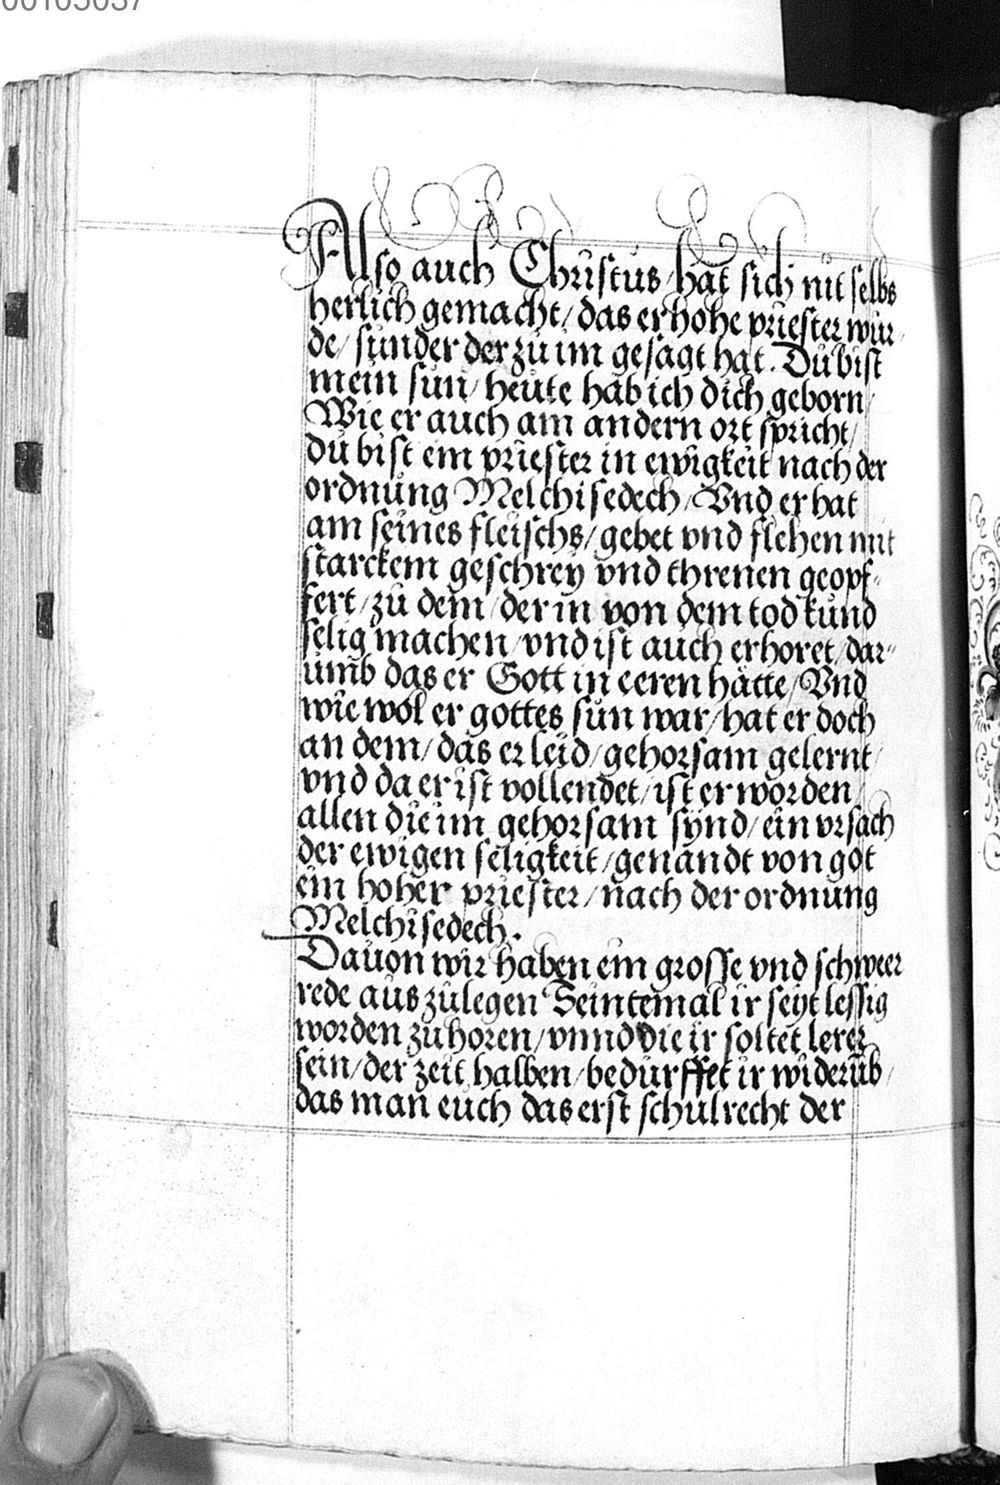 00105037
Also auch Christus/hat sich nit selbs
herlich gemacht/das er hohe priester wur-
de/sunder der zu im gesagt hat. Du bist
mein sun/heute hab ich dich geborn/
Wie er auch am andern ort spricht/
du bist ein priester in ewigkeit nach der
ordnung Melchisedech/Vnd er hat
am seines fleischs/gebet vnd flehen mit
starckem geschrey vnd threnen geopf-
fert/zu dem/der in von dem tod kund
selig machen/vnd ist auch erhoret/dar-
umb das er Gott in eeren hätte/Vnd
wie wol er gottes sun war/hat er doch
an dem/das er leid/gehorsam gelernt/
vnd da er ist vollendet/ist er worden/
allen die im gehorsam synd/ein vrsach
der ewigen seligkeit/genandt von got
ein hoher priester/nach der ordnung
Melchisedech.
Dauon wir haben ein grosse vnd schweer
rede aus zulegen Seintemal ir seyt lessig
worden zu horen/vnnd die ir soltet lerer
sein/der zeit halben/bedurffet ir widerüb/
das man euch das erst schulrecht der